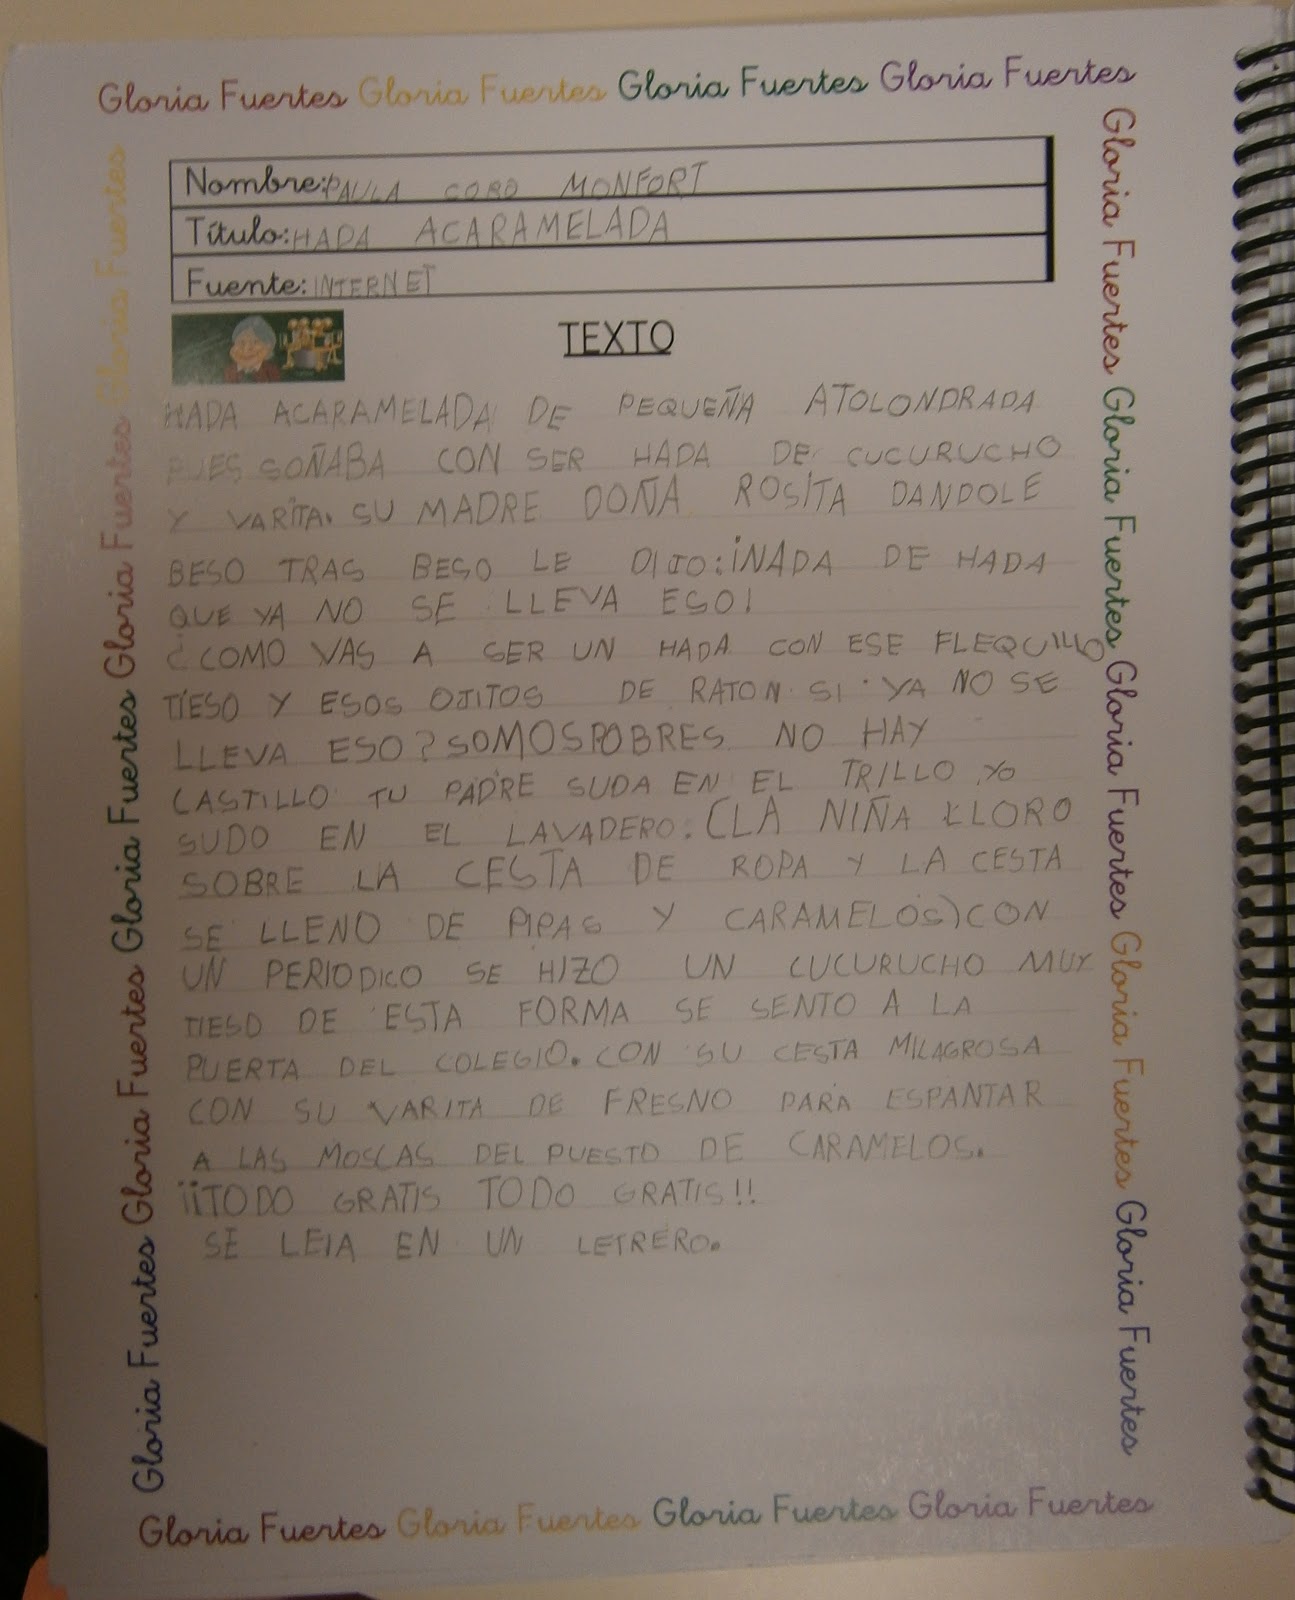 Gloria Fuertes Gloria Fuertes Gloria Fuertes Gloria Fuertes
Nombre: PAULA CORO MONFORT
Título: HADA ACARAMELADA
Fuente: INTERNET
TEXTO
HADA ACARAMELADA DE PEQUEÑA ATOLONDRADA
PUES SOÑABA CON SER HADA DE CUCURUCHO
Y VARITA. SU MADRE DOÑA ROSITA DANDOLE
BESO TRAS BESO LE DIJO: ¡NADA DE HADA
QUE YA NO SE LLEVA ESO!
¿COMO VAS A SER UN HADA CON ESE FLEQUILLO
TIESO Y ESOS OJITOS DE RATON SI YA NO SE
LLEVA ESO? SOMOS POBRES NO HAY
CASTILLO TU PADRE SUDA EN EL TRILLO YO
SUDO EN EL LAVADERO. (LA NIÑA LLORO
SOBRE LA CESTA DE ROPA Y LA CESTA
SE LLENO DE PIPAS Y CARAMELOS) CON
UN PERIODICO SE HIZO UN CUCURUCHO MUY
TIESO DE ESTA FORMA SE SENTO A LA
PUERTA DEL COLEGIO. CON SU CESTA MILAGROSA
CON SU VARITA DE FRESNO PARA ESPANTAR
A LAS MOSCAS DEL PUESTO DE CARAMELOS.
¡¡TODO GRATIS TODO GRATIS!!
SE LEIA EN UN LETRERO.
Gloria Fuertes Gloria Fuertes Gloria Fuertes Gloria Fuertes Gloria Fuertes
Gloria Fuertes Gloria Fuertes Gloria Fuertes Gloria Fuertes Gloria Fuertes
Gloria Fuertes Gloria Fuertes Gloria Fuertes Gloria Fuertes